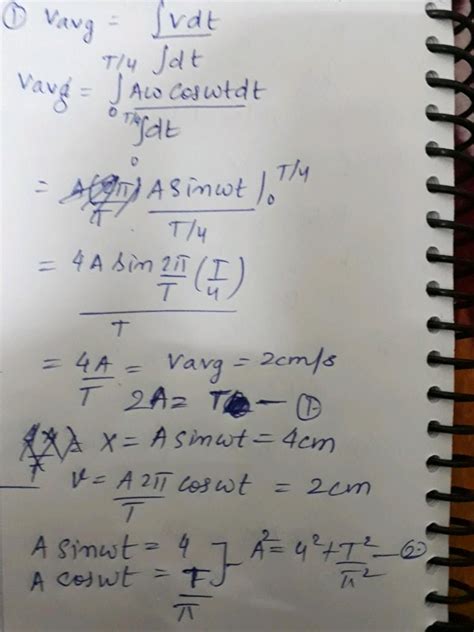 ① Vavg = ∫vdt / ∫dt
Vavg = ∫₀^{T/4} Aω cosωt dt / ∫₀^{T/4} dt
= A sinωt |₀^{T/4} / T/4
= 4A sin 2π/T (T/4) / T
= 4A/T = Vavg = 2cm/s
2A = T — ①
x = A sinωt = 4cm
v = A2π/T cosωt = 2cm
A sinωt = 4
A cosωt = T/π ] A² = 4² + T²/π² — ②